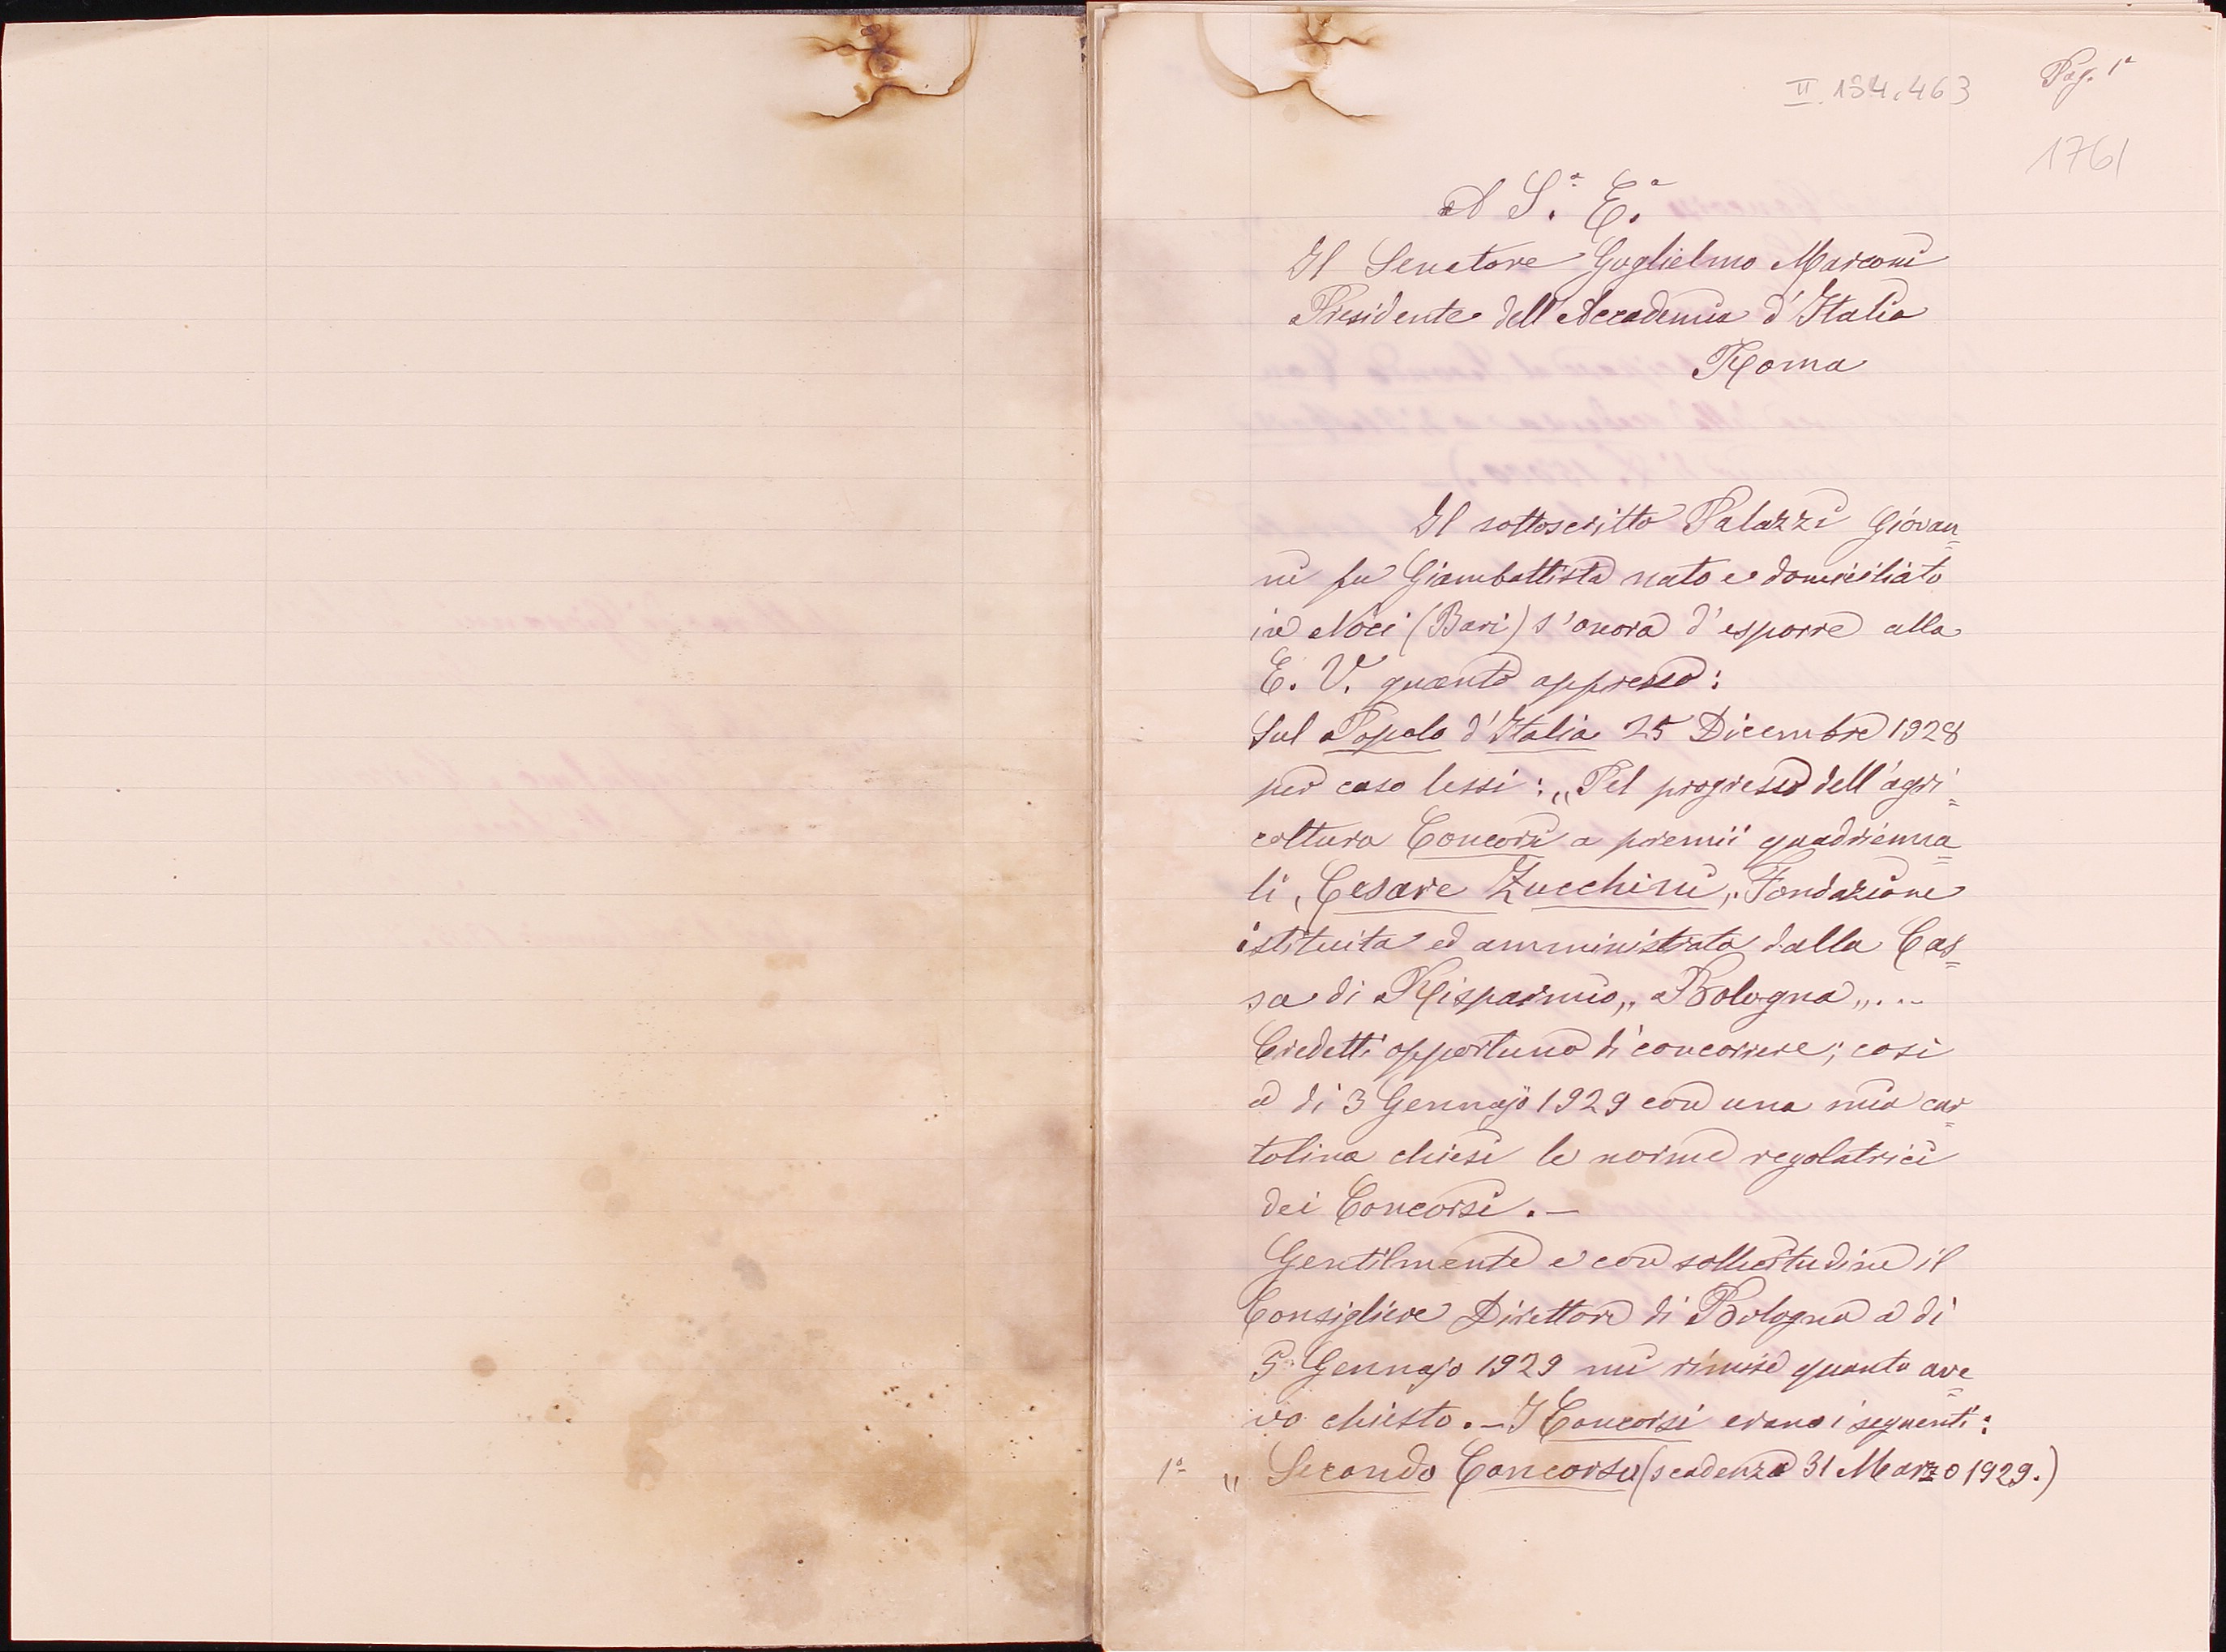 II 134.463
Pag. 1ª
1761
A S.ª E.ª
Il Senatore Guglielmo Marconi
Presidente dell'Accademia d'Italia
Roma
Il sottoscritto Palazzi Giovan=
ni fu Giambattista nato e domiciliato
in Noci (Bari) s'onora d'esporre alla
E. V. quanto appresso:
Sul Popolo d'Italia 25 Dicembre 1928
per caso lessi: „Pel progresso dell'agri=
coltura Concorsi a premii quadrienna=
li, Cesare Zucchini,„ Fondazione
istituita ed amministrata dalla Cas=
sa di Risparmio„ Bologna„...
Credetti opportuno di concorrere; così
a di 3 Gennajo 1929 con una mia car=
tolina chiesi le norme regolatrici
dei Concorsi. —
Gentilmente e con sollecitudine il
Consigliere Direttore di Bologna a di
5 Gennajo 1929 mi rimise quanto ave=
vo chiesto. — I Concorsi erano i seguenti:
1º „ Secondo Concorso (scadenza 31 Marzo 1929.)